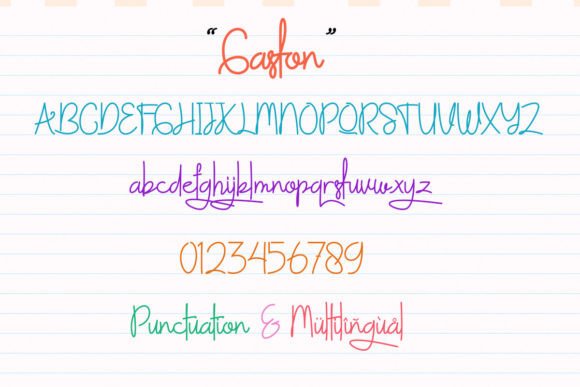 “Gaston”
ABCDEFGHIJKLMNOPQRSTUVWXYZ
abcdefghijklmnopqrstuvwxyz
0123456789
Punctuation & Mültilîñgùãl